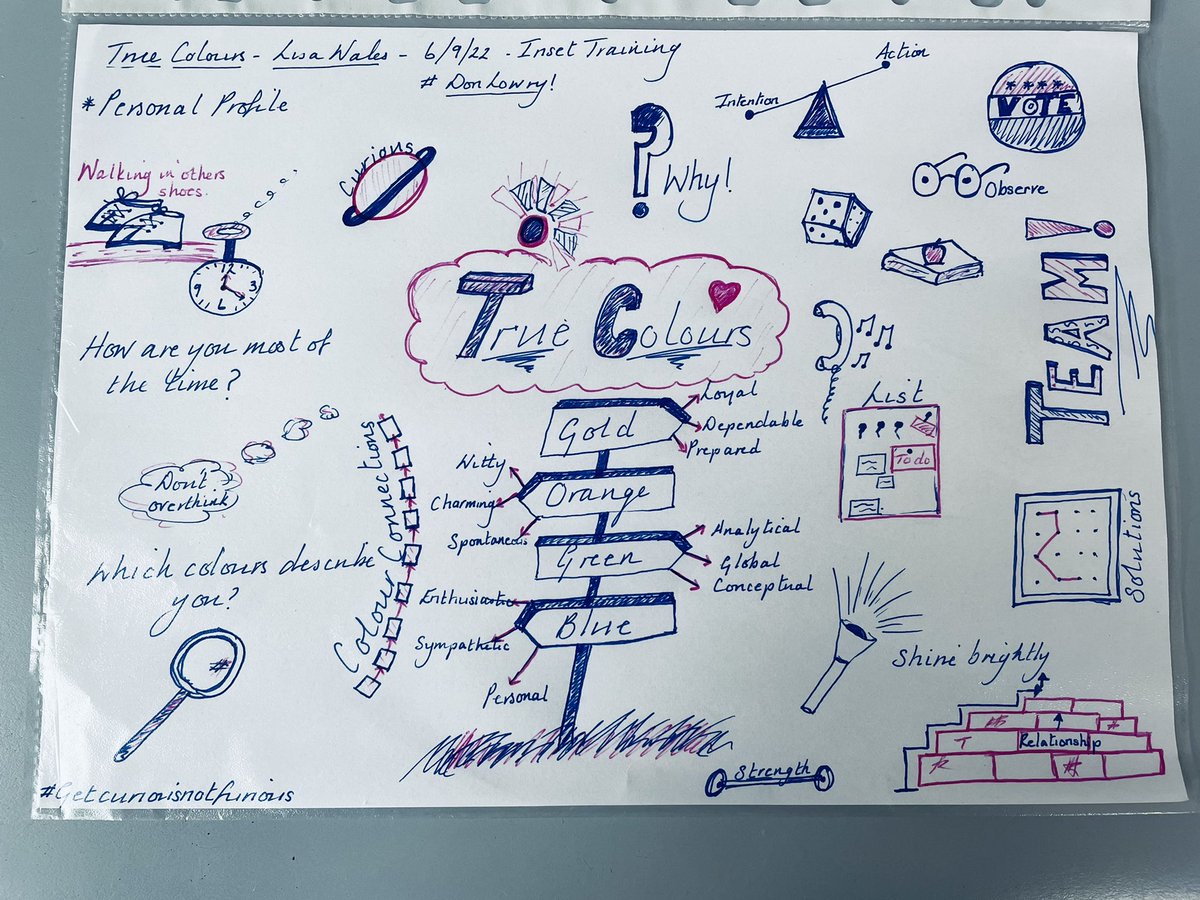 True Colours - Lisa Wales - 6/9/22 - Inset Training
# Don Lowry!
*Personal Profile
Intention
Action
VOTE
Walking in others
shoes.
Curious
? Why!
Observe
12
9 3
6
TEAM!
True Colours
How are you most of
the time?
Loyal
Gold
Dependable
Prepared
List
To do
Witty
Orange
Charming
Spontaneous
Don't
overthink
Colour Connections
Analytical
Green
Global
Conceptual
Solutions
Which colours describe
you?
Enthusiastic
Blue
Sympathetic
Personal
#
Shine brightly
Relationship
Strength
#Getcuriousnotfurious